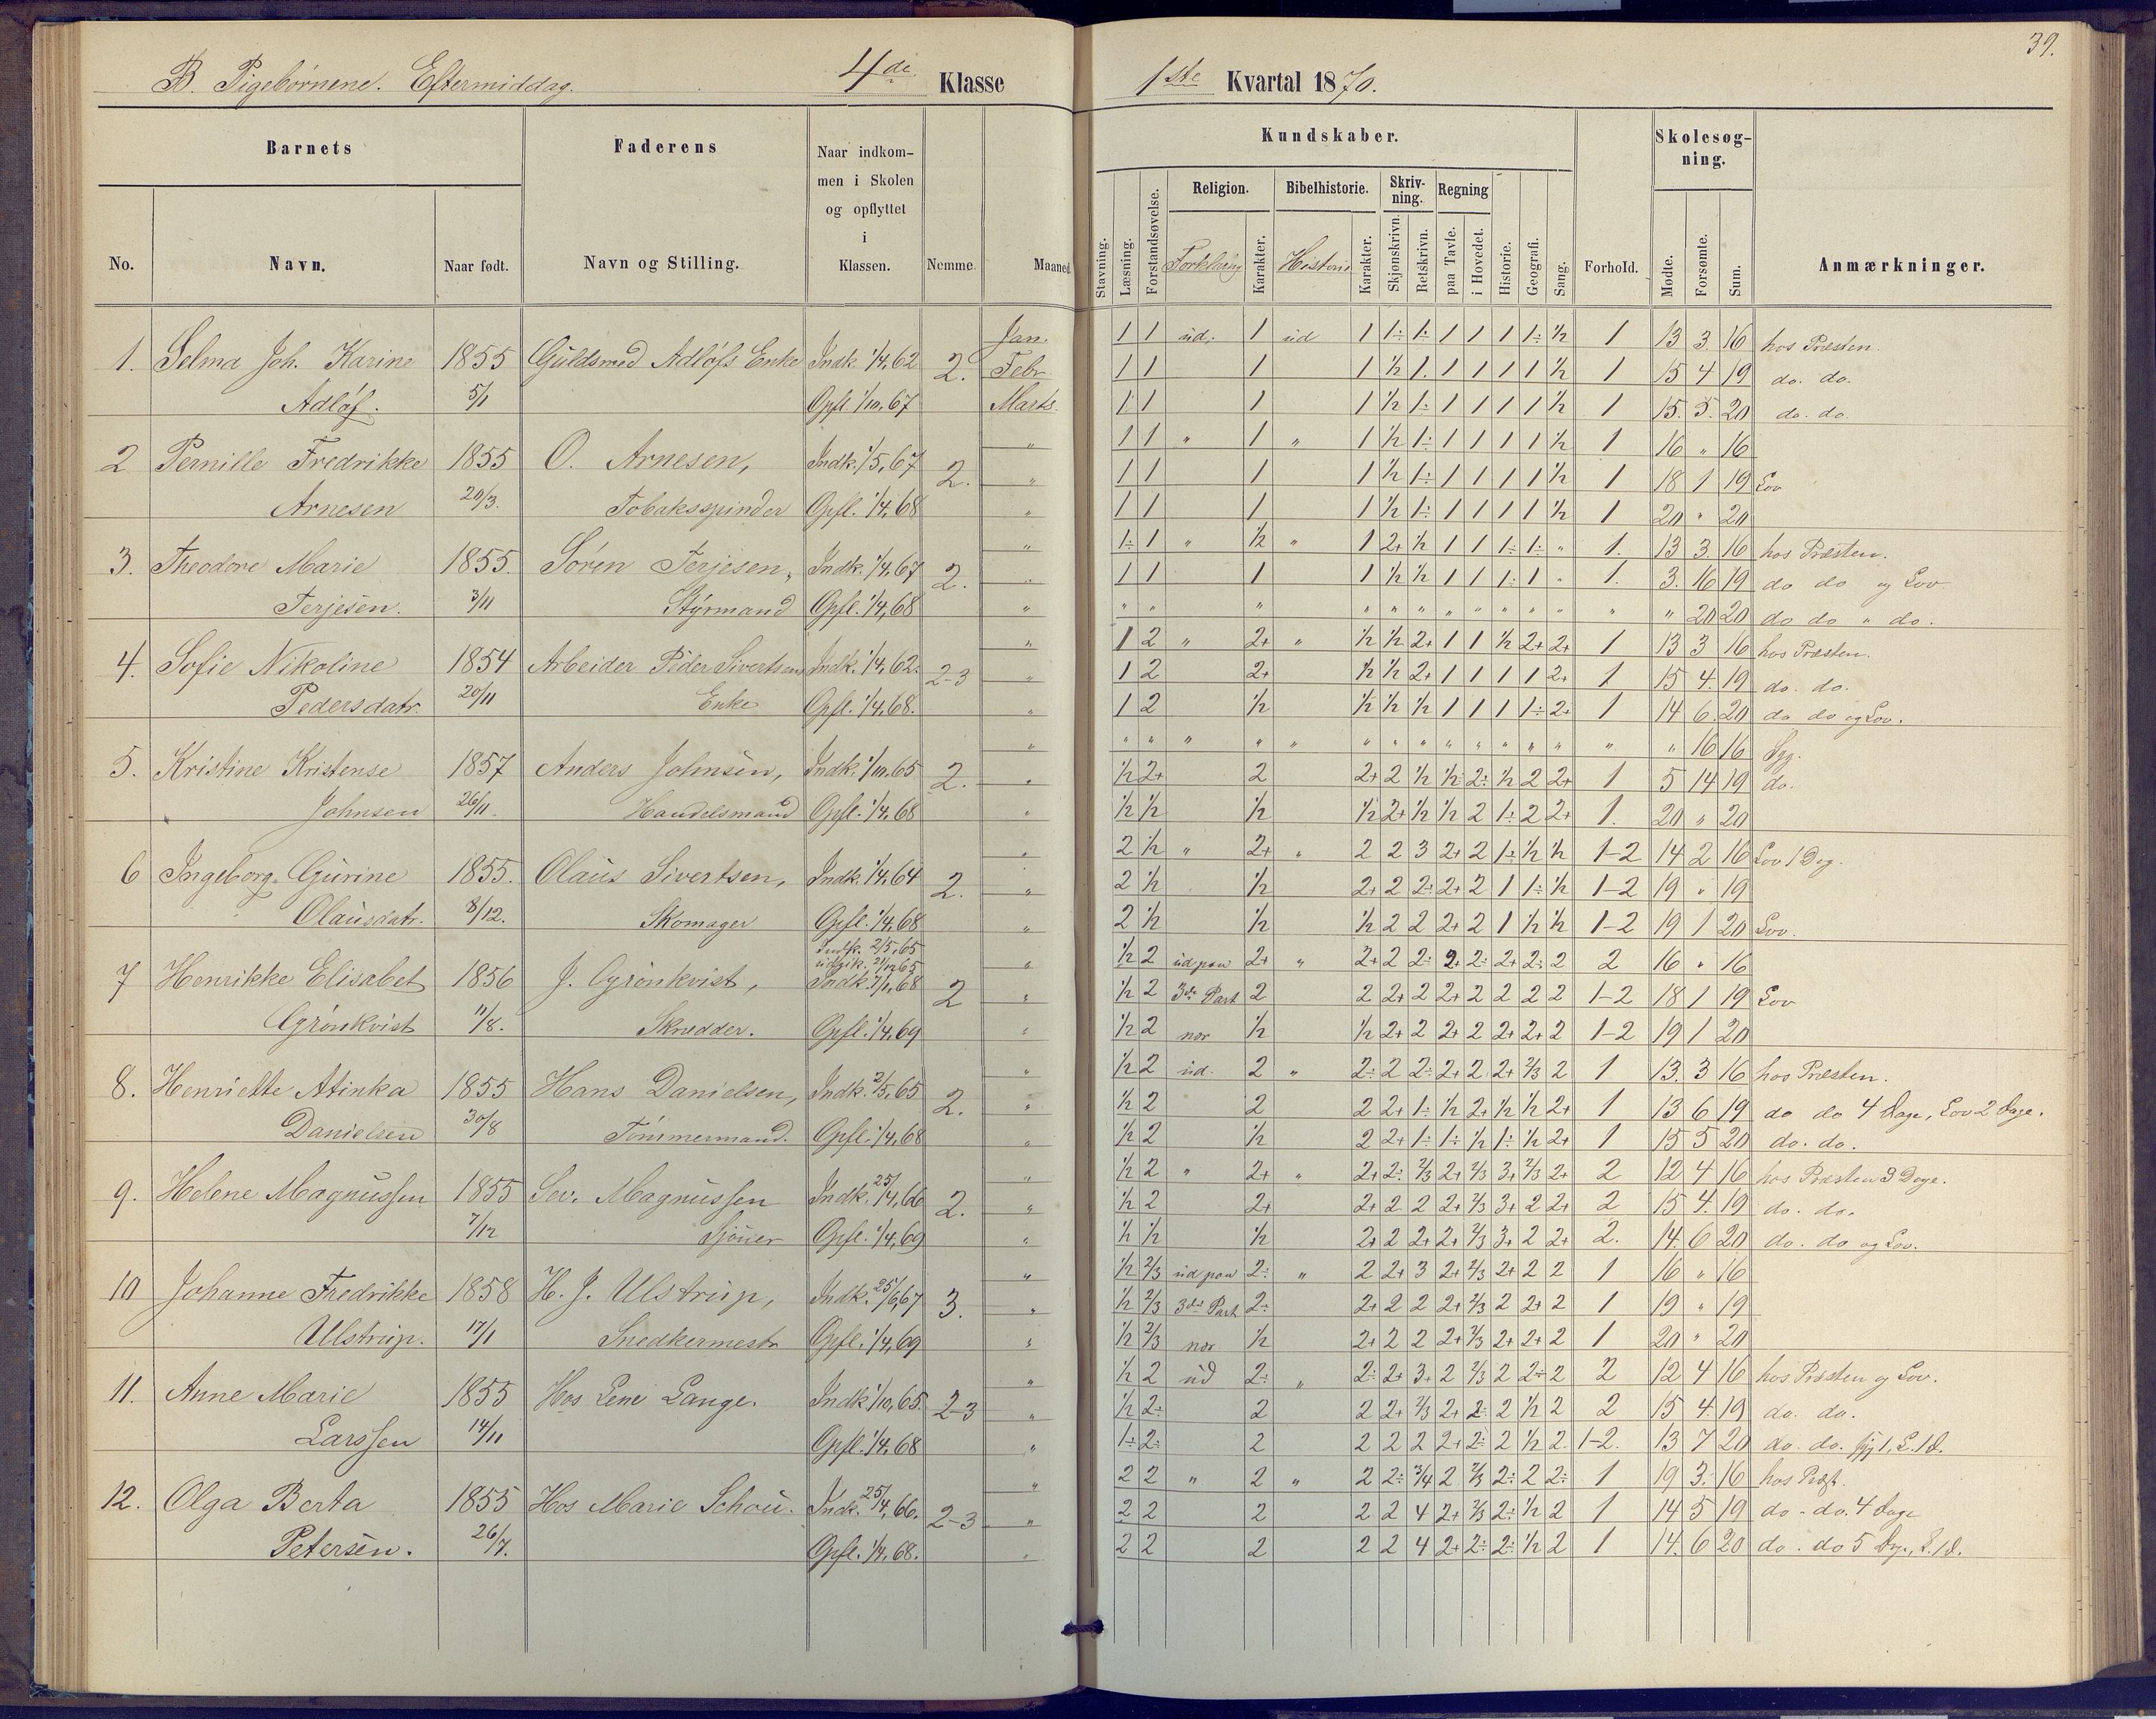 B. Pigebørnene. Eftermiddag. 4de Klasse
1ste Kvartal 1870. 39.
Barnets Faderens Naar indkommen i Skolen og opflyttet i Klassen. Nemme. Maaned
No. Navn. Naar født. Navn og Stilling.
Kundskaber. Forhold. Skolesøgning. Anmærkninger.
Stavning. Læsning. Forstandsøvelse. Religion. Forklaring Karakter. Bibelhistorie. Historie Karakter. Skrivning. Skjønskrivn. Retskrivn. Regning paa Tavle. i Hovedet. Historie. Geografi. Sang. Mødte. Forsømte. Sum.
1. Selma Joh. Karine 1855 Guldsmed Adløfs Enke Indk. 1/4,62 2. Jan. Febr.
Adløf. 5/1 Opfl. 1/10,67 Marts.
1 1 ud. 1 ud 1 1÷ 1÷ 1 1 1 1÷ ½ 1 13 3 16 hos Præsten.
1 1 1 1 ½ 1. 1 1 1 1 ½ 1 15 4 19 do. do.
1 1 1 1 ½ 1÷ 1 1 1 1 ½ 1 15. 5. 20 do. do.
2 Pernille Fredrikke 1855 O. Arnesen, Indk. 1/5,67 2. "
Arnesen 20/3. Tobaksspinder Opfl. 1/4,68
1 1 " 1 " 1 ½ 1÷ 1 1 1 1 ½ 1 16 " 16
1 1 1 1 ½ 1÷ 1 1 1 1 ½ 1 18 1 19 Lov
1 1 1 1 ½ 1÷ 1 1 1 1 ½ 1 20 " 20
3. Theodore Marie 1855. Søren Terjesen, Indk. 1/4,67 2. "
Terjesen. 3/11 Styrmand Opfl. 1/4,68
1÷ 1 " ½ " 1 2+ ½ 1 1 1÷ 1÷ " 1. 13 3 16 hos Præsten.
1 1 1 1 ½ ½ 1 1 1÷ 1 " 1. 3. 16 19 do do og Lov
" " " " " " " " " " " " " 20 20 do do " do.
4. Sofie Nikoline 1854 Arbeider Peder Sivertsens Indk. 1/4,62. 2-3 "
Pedersdatr. 20/11 Enke Opfl. 1/4,68.
1 2 " 2+ " ½ ½ 2+ 1 1 ½ 2+ 2+ 1 13 3 16 hos Præsten.
1 2 2+ ½ ½ 2+ 1 1 1 1 2+ 1 15 4. 19 do. do.
1 2 ½ ½ ½ ½ 1 1 1 1÷ 2+ 1 14 6. 20 do do og Lov.
5. Kristine Kristense 1857 Anders Johnsen, Indk. 1/10,65 2. "
Johnsen 26/11. Handelsmand Opfl. 1/4,68
" " " " " " " " " " " " " " " 16 16 Syg.
½ 2+ 2 2+ 2 ½ ½ 2÷ ½ 2 2+ 1 5 14 19 do.
½ ½ ½ ½ 2+ ½ ½ 2 1÷ 2 2+ 1. 20 " 20
6 Ingeborg Gurine 1855. Olaus Sivertsen, Indk. 1/4,64 2. "
Olausdatr. 8/12. Skomager Opfl. 1/4,68
2 ½ " 2+ " 2 2 3 2+ 2 1÷ ½ ½ 1-2 14 2 16 Lov 1 Dag.
2 ½ ½ 2+ 2 2÷ 2+ 2 1 1÷ ½ 1-2 19 " 19
2 ½ ½ ½ 2 2 2+ 2 1 ½ ½ 1-2 19 1 20 Lov.
Indk. 2/5,65
udgik. 21/12 65
7 Henrikke Elisabet 1856 J. Grönkvist, Indk. 7/1,68 2 "
Grönkvist 11/8. Skrædder. Opfl. 1/4,69
½ 2 ud paa 2+ " 2+ 2 2÷ 2+ 2÷ 2+ 2÷ 2 2 16 " 16
½ 2 3die Part 2 2 2+ 2 2+ 2 2 2 2 1-2 18 1 19 Lov
½ 2 nær ½ ½ 2+ 2 2+ 2 2+ 2+ 2 1-2 19 1 20
8. Henriette Atinka 1855 Hans Danielsen, Indk. 2/5,65 2. "
Danielsen 30/8 Tömmermand. Opfl. 1/4,68
½ 2 ud. 2 " 2÷ 2 2÷ 2+ 2 2+ ⅔ 2 1 13. 3 16 hos Præsten.
½ 2 2 2 2+ 1÷ ½ 2+ ½ ½ 2+ 1 13 6 19 do do 4 Dage, Lov 2 Dage.
½ 2 ½ 2 2+ 1÷ 1÷ ½ 1÷ ½ 2+ 1 15 5 20 do. do.
9. Helene Magnussen 1855 Sev. Magnussen Indk. 25/4,66 2. "
7/12 Sjöuer Opfl. 1/4,69
½ 2 " 2+ " 2+ 2÷ ⅔ 2+ ⅔ 3+ ⅔ 2+ 2 12 4 16 hos Præsten 3 Dage.
½ 2 2+ 2+ 2 2 2+ ⅔ 3+ 2 2+ 2 15 4. 19 do. do.
½ ½ ½ 2+ 2 2+ 2+ ⅔ 3+ 2 2+ 2. 14. 6 20 do. do og Lov.
10 Johanne Fredrikke 1858 H. J. Ulstrup, Indk. 25/6,67 3. "
Ulstrup. 17/1 Snedkermestr Opfl. 1/4,69
½ ⅔ ud paa 2÷ " 2 2+ 3 2+ ⅔ 2+ 2 2 1 16 " 16
½ ⅔ 3die Part 2÷ 2+ 2 2 2+ ⅔ 2 2+ 2 1 19 " 19
½ ⅔ nær ½ 2+ 2 2 2+ ⅔ 2+ 2+ 2 1 20 " 20
11. Anne Marie 1855 Hos Lene Lange. Indk 1/10,65. 2-3 "
Larssen 14/11 Opfl. 1/4,68
½ 2 ud 2÷ " 2÷ 2+ 3+ 2 ⅔ 2 2÷ 2 2 12 4 16 hos Præsten og Lov.
½ 2÷ 2 2 2+ ⅔ 2+ 2÷ 2 ½ 2 2 15 4. 19 do. do.
1÷ 2÷ 2 2 2 2 2+ 2÷ 2 ½ 2. 1-2. 13 7 20 do. do. Syg 1, L. 1 D.
12. Olga Berta 1855 Hos Marie Schou. Indk. 25/4,66. 2-3 "
Petersen. 26/7. Opfl. 1/4,68.
2 2 " 2 " 2 2÷ ¾ 2 ⅔ 2÷ 2 2÷ 1 19 3. 16 hos Præst.
2 2 2 2 2 4 2+ ⅔ 2÷ ½ 2 1 14 5 19 do. do. 4 Dage
2 2 2 2 2 4 2+ 2÷ 2÷ ½ 2 1 14. 6 20 do. do 5 Dge., L. 1 D.